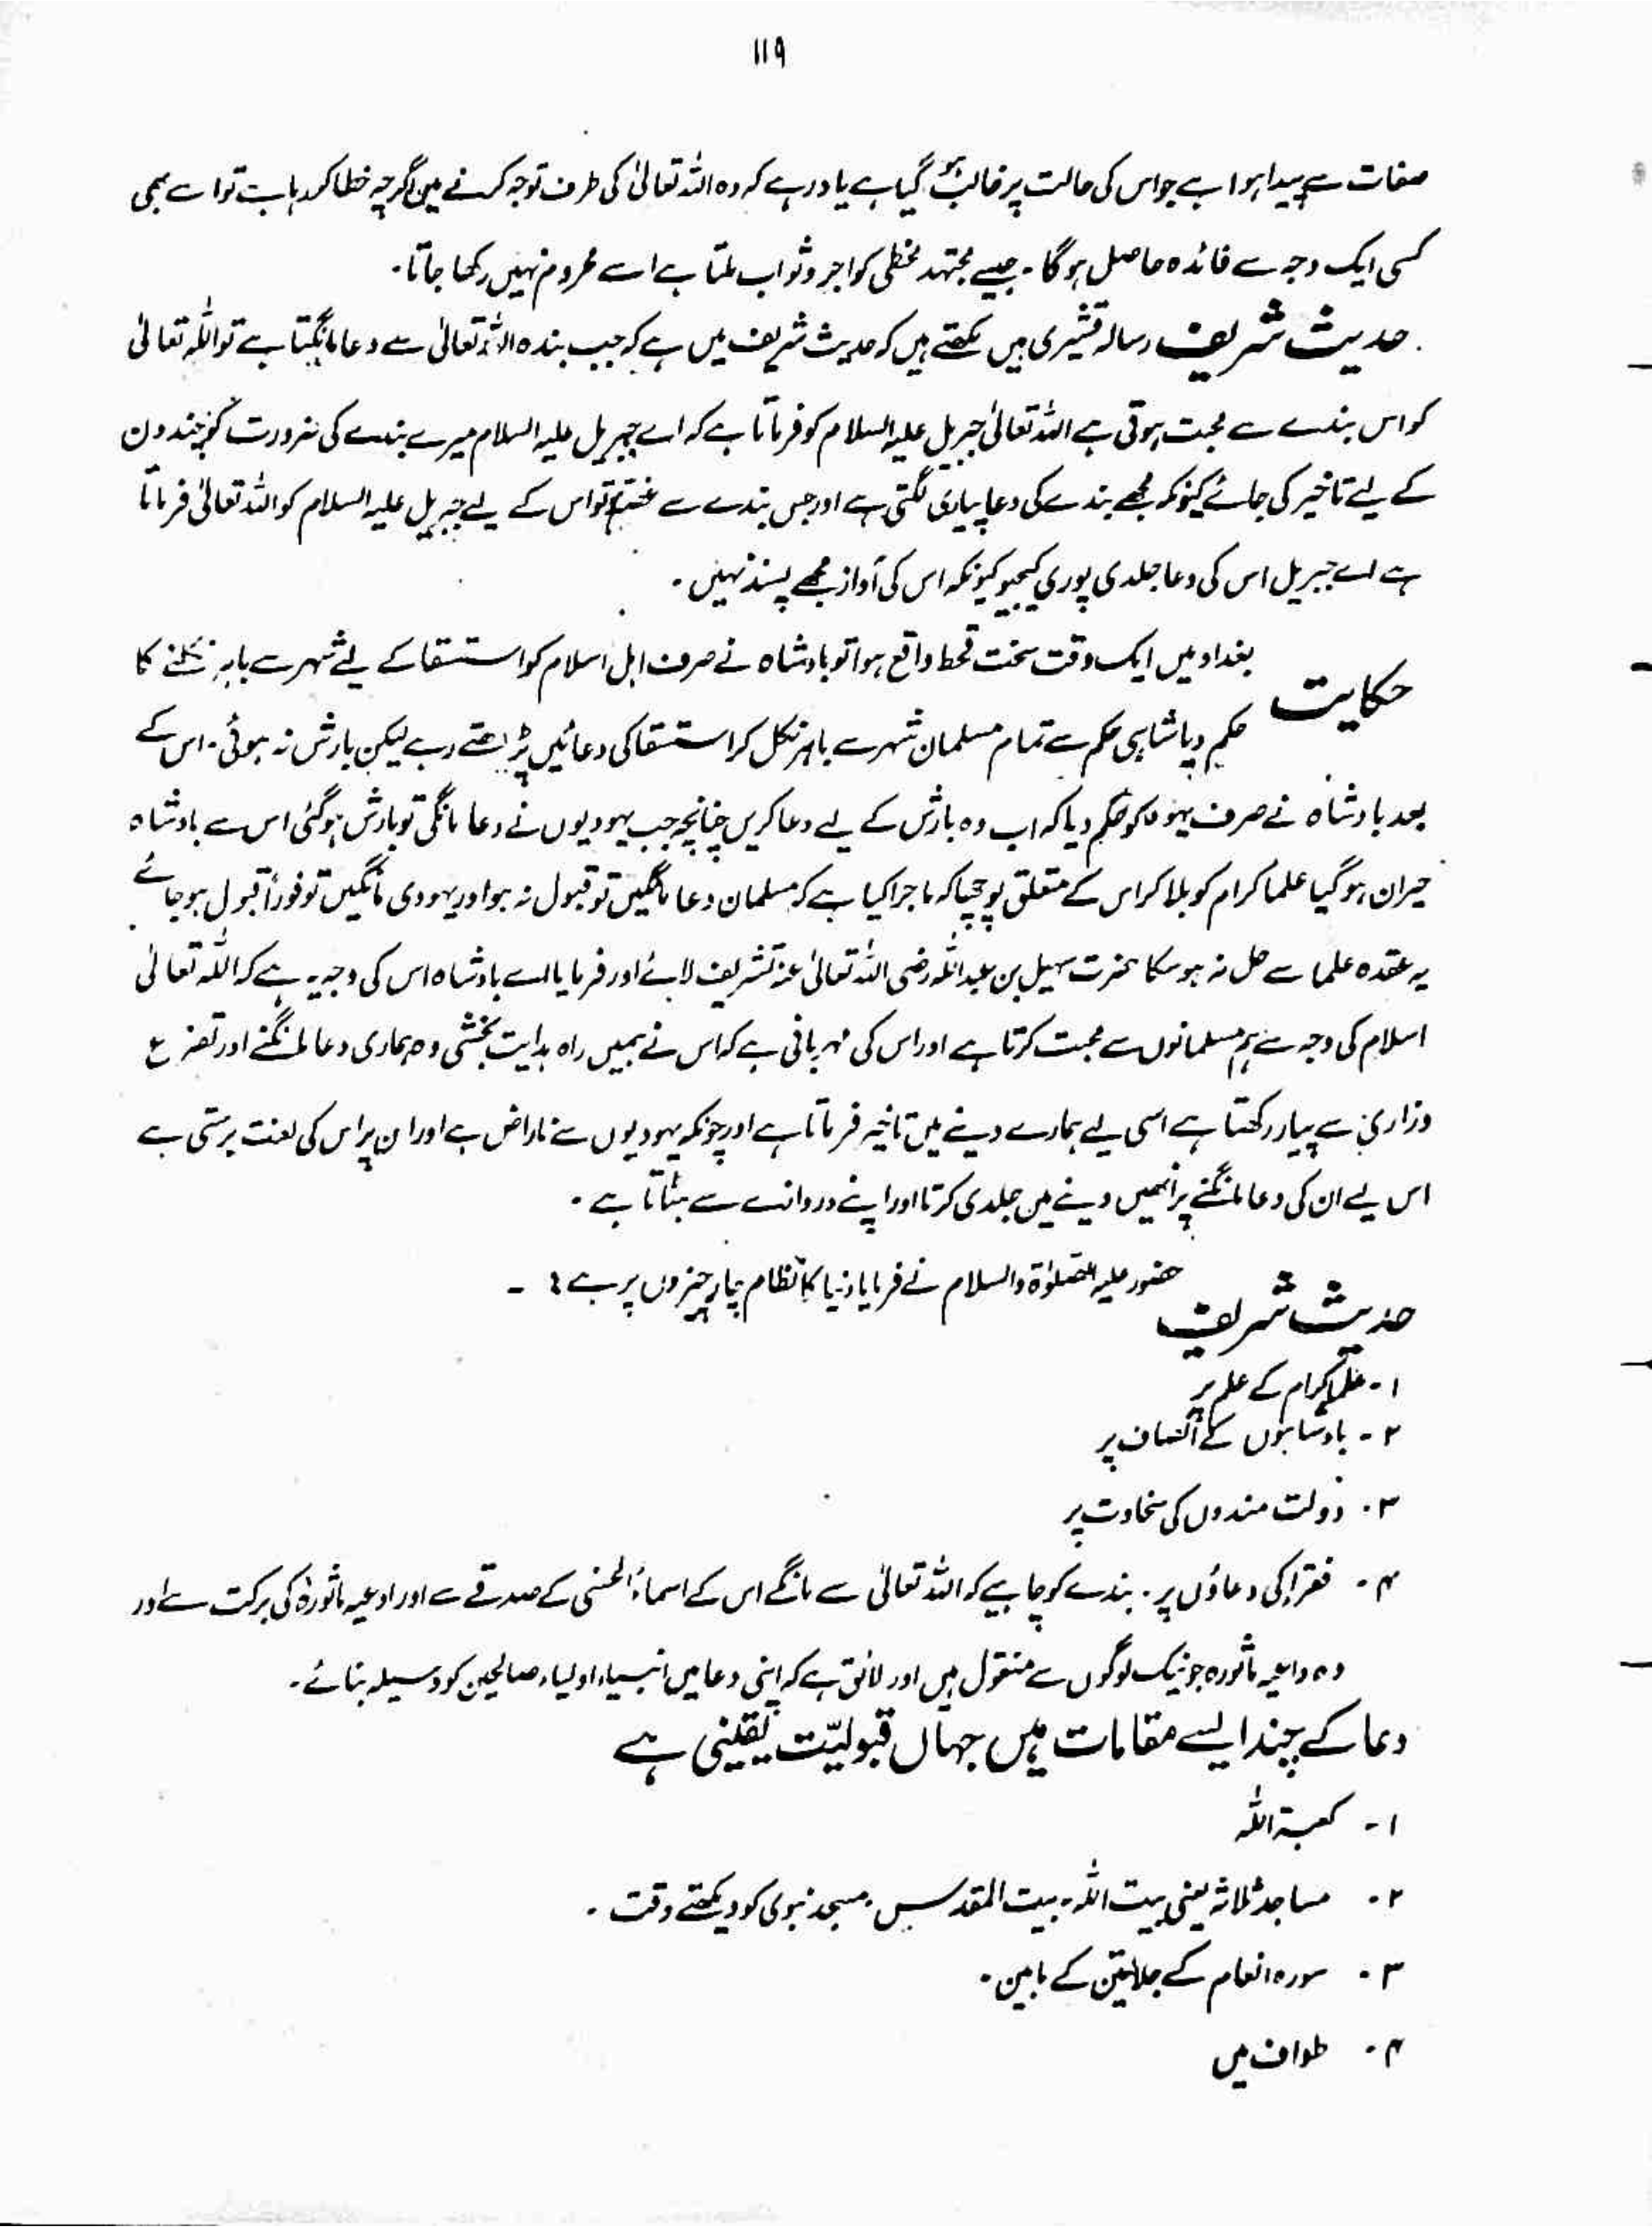 ۱۱۹
صفات سے پیدا ہوا ہے جو اس کی حالت پر غالب ہو گیا ہے یاد رہے کہ وہ اللہ تعالیٰ کی طرف توجہ کرنے میں اگرچہ خطا کر رہا ہے تو اسے بھی
کسی ایک وجہ سے فائدہ حاصل ہوگا ۔ جیسے مجتہد مخطی کو اجر و ثواب ملتا ہے اسے محروم نہیں رکھا جاتا ۔
حدیث شریف رسالہ قشیری میں لکھتے ہیں کہ حدیث شریف میں ہے کہ جب بندہ اللہ تعالیٰ سے دعا مانگتا ہے تو اللہ تعالیٰ
کو اس بندے سے محبت ہوتی ہے اللہ تعالیٰ جبریل علیہ السلام کو فرماتا ہے کہ اے جبریل علیہ السلام میرے بندے کی ضرورت کو چند دن
کے لیے تاخیر کی جائے کیونکہ مجھے بندے کی دعا پیاری لگتی ہے اور جس بندے سے غصہ ہو تو اس کے لیے جبریل علیہ السلام کو اللہ تعالیٰ فرماتا
ہے اے جبریل اس کی دعا جلدی پوری کیجیو کیونکہ اس کی آواز مجھے پسند نہیں ۔
حکایت بغداد میں ایک وقت سخت قحط واقع ہوا تو بادشاہ نے صرف اہل اسلام کو استسقا کے لیے شہر سے باہر نکلنے کا
حکم دیا شاہی حکم سے تمام مسلمان شہر سے باہر نکل کر استسقا کی دعائیں پڑھتے رہے لیکن بارش نہ ہوئی ۔ اس کے
بعد بادشاہ نے صرف یہود کو حکم دیا کہ اب وہ بارش کے لیے دعا کریں چنانچہ جب یہودیوں نے دعا مانگی تو بارش ہوگئی اس سے بادشاہ
حیران ہوگیا علما کرام کو بلا کر اس کے متعلق پوچھا کہ ماجرا کیا ہے کہ مسلمان دعا مانگیں تو قبول نہ ہو اور یہودی مانگیں تو فوراً قبول ہو جائے
یہ عقدہ علما سے حل نہ ہو سکا حضرت سہیل بن عبداللہ رضی اللہ تعالیٰ عنہ تشریف لائے اور فرمایا اے بادشاہ اس کی وجہ یہ ہے کہ اللہ تعالیٰ
اسلام کی وجہ سے ہم مسلمانوں سے محبت کرتا ہے اور اس کی مہربانی ہے کہ اس نے ہمیں راہ ہدایت بخشی وہ ہماری دعا مانگنے اور تضرع
وزاری سے پیار رکھتا ہے اسی لیے ہمارے دینے میں تاخیر فرماتا ہے اور چونکہ یہودیوں سے ناراض ہے اور ان پر اس کی لعنت برستی ہے
اس لیے ان کی دعا مانگنے پر انہیں دینے میں جلدی کرتا اور اپنے دروازے سے ہٹاتا ہے ۔
حدیث شریف حضور علیہ الصلوٰۃ والسلام نے فرمایا دنیا کا نظام چار چیزوں پر ہے : ۔
۱ - علما کرام کے علم پر
۲ - بادشاہوں کے انصاف پر
۳ ۔ دولت مندوں کی سخاوت پر
۴ ۔ فقرا کی دعاؤں پر ۔ بندے کو چاہیے کہ اللہ تعالیٰ سے مانگے اس کے اسماء الحسنی کے صدقے سے اور ادعیہ ماثورہ کی برکت سے اور
وہ ادعیہ ماثورہ جو نیک لوگوں سے منقول ہیں اور لائق ہے کہ اپنی دعا میں انبیاء اولیاء صالحین کو وسیلہ بنائے ۔
دعا کے چند ایسے مقامات ہیں جہاں قبولیّت یقینی ہے
۱ - کعبۃ اللہ
۲ ۔ مساجد ثلاثہ یعنی بیت اللہ ۔ بیت المقدس ۔ مسجد نبوی کو دیکھتے وقت ۔
۳ ۔ سورہ انعام کے جلالتین کے مابین ۔
۴ ۔ طواف میں